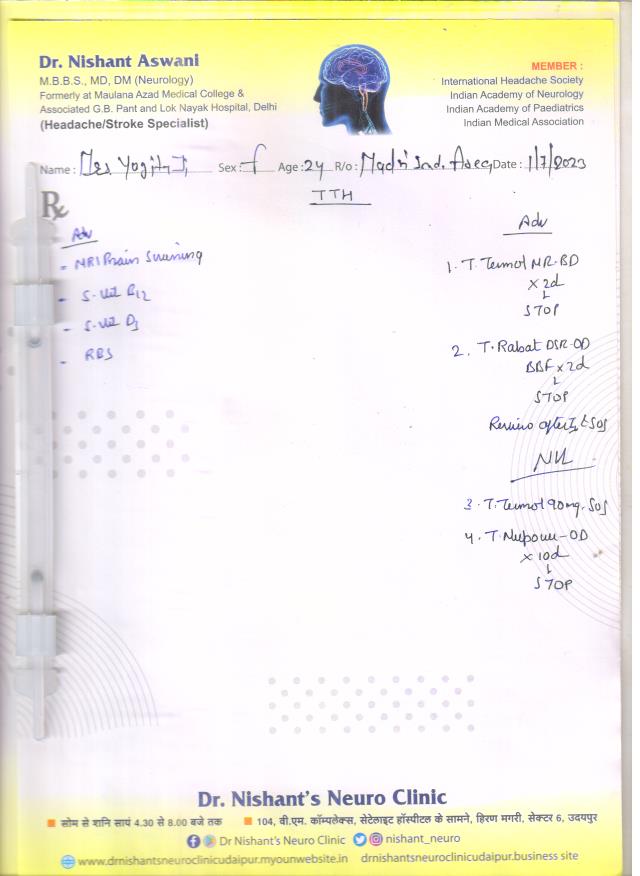 Dr. Nishant Aswani
M.B.B.S., MD, DM (Neurology)
Formerly at Maulana Azad Medical College &
Associated G.B. Pant and Lok Nayak Hospital, Delhi
(Headache/Stroke Specialist)
MEMBER :
International Headache Society
Indian Academy of Neurology
Indian Academy of Paediatrics
Indian Medical Association
Name : Sex : f Age : 24 R/o : Date : 1/7/2023
TTH
Rx
Adv
- MRI Brain
- S. Vit B12
- S. Vit D3
- RBS
Adv
1. T. MR-BD
x 2d
↓
STOP
2. T. Rabat DSR-OD
BBF x 2d
↓
STOP
Review after
3. T. 90mg. SOS
4. T. -OD
x 10d
↓
STOP
Dr. Nishant's Neuro Clinic
सोम से शनि सायं 4.30 से 8.00 बजे तक 104, वी.एम. कॉम्पलेक्स, सेटेलाइट हॉस्पीटल के सामने, हिरण मगरी, सेक्टर 6, उदयपुर
Dr Nishant's Neuro Clinic nishant_neuro
www.drnishantsneuroclinicudaipur.myounwebsite.in drnishantsneuroclinicudaipur.business site